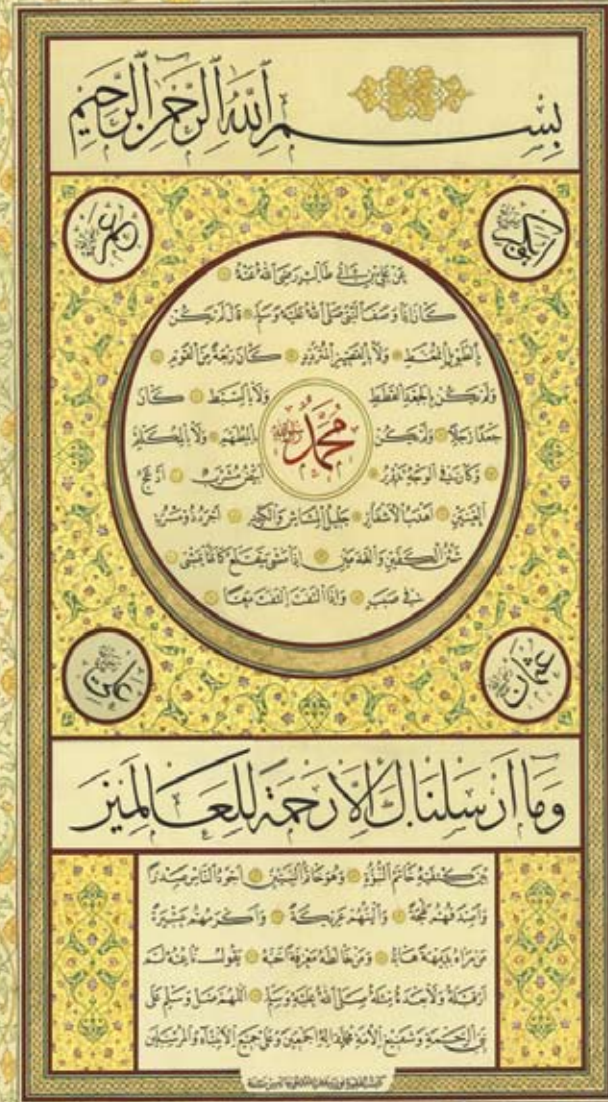 بِسْمِ ٱللَّهِ ٱلرَّحْمٰنِ ٱلرَّحِيمِ
ابوبكر رضي الله عنه
عمر رضي الله عنه
عَنْ عَلِيِّ بْنِ أَبِي طَالِبٍ رَضِيَ اللهُ عَنْهُ
كَانَ إِذَا وَصَفَ النَّبِيَّ صَلَّى اللهُ عَلَيْهِ وَسَلَّمَ قَالَ لَمْ يَكُنْ
بِالطَّوِيلِ الْمُمَّغِطِ وَلَا بِالْقَصِيرِ الْمُتَرَدِّدِ كَانَ رَبْعَةً مِنَ الْقَوْمِ
وَلَمْ يَكُنْ بِالْجَعْدِ الْقَطَطِ وَلَا بِالسَّبِطِ كَانَ
جَعْدًا رَجِلًا وَلَمْ يَكُنْ بِالْمُطَهَّمِ وَلَا بِالْمُكَلْثَمِ
مُحَمَّدٌ
وَكَانَ فِي الْوَجْهِ تَدْوِيرٌ أَبْيَضُ مُشْرَبٌ أَدْعَجُ
الْعَيْنَيْنِ أَهْدَبُ الْأَشْفَارِ جَلِيلُ الْمُشَاشِ وَالْكَتَدِ أَجْرَدُ ذُو مَسْرُبَةٍ
شَثْنُ الْكَفَّيْنِ وَالْقَدَمَيْنِ إِذَا مَشَى يَتَقَلَّعُ كَأَنَّمَا يَمْشِي
فِي صَبَبٍ وَإِذَا الْتَفَتَ الْتَفَتَ مَعًا
عثمان رضي الله عنه
علي رضي الله عنه
وَمَا أَرْسَلْنَاكَ إِلَّا رَحْمَةً لِلْعَالَمِينَ
بَيْنَ كَتِفَيْهِ خَاتَمُ النُّبُوَّةِ وَهُوَ خَاتَمُ النَّبِيِّينَ أَجْوَدُ النَّاسِ صَدْرًا
وَأَصْدَقُهُمْ لَهْجَةً وَأَلْيَنُهُمْ عَرِيكَةً وَأَكْرَمُهُمْ عَشِيرَةً
مَنْ رَآهُ بَدِيهَةً هَابَهُ وَمَنْ خَالَطَهُ مَعْرِفَةً أَحَبَّهُ يَقُولُ نَاعِتُهُ لَمْ
أَرَ قَبْلَهُ وَلَا بَعْدَهُ مِثْلَهُ صَلَّى اللهُ عَلَيْهِ وَسَلَّمَ اللَّهُمَّ صَلِّ وَسَلِّمْ عَلَى
نَبِيِّ الرَّحْمَةِ وَشَفِيعِ الْأُمَّةِ مُحَمَّدٍ وَآلِهِ أَجْمَعِينَ وَعَلَى جَمِيعِ الْأَنْبِيَاءِ وَالْمُرْسَلِينَ